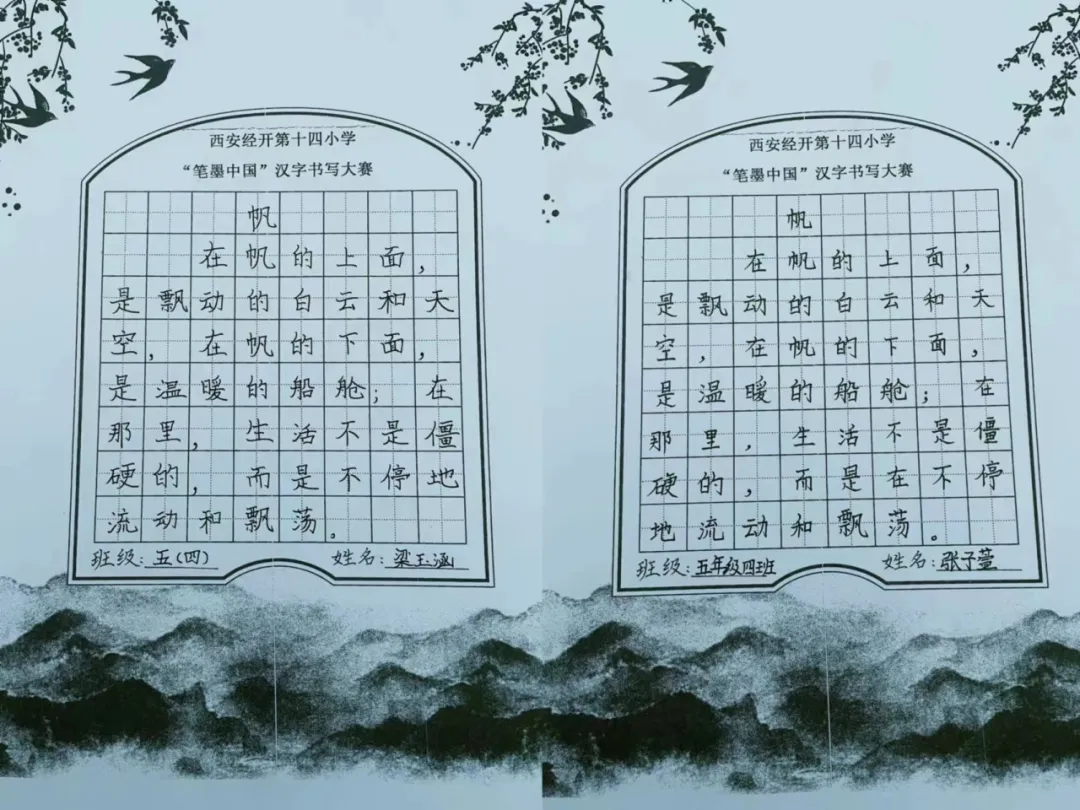 西安经开第十四小学
“笔墨中国”汉字书写大赛
帆
在帆的上面，
是飘动的白云和天
空，在帆的下面，
是温暖的船舱；在
那里，生活不是僵
硬的，而是不停地
流动和飘荡。
班级：五（四） 姓名：梁玉涵
西安经开第十四小学
“笔墨中国”汉字书写大赛
帆
在帆的上面，
是飘动的白云和天
空，在帆的下面，
是温暖的船舱；在
那里，生活不是僵
硬的，而是在不停
地流动和飘荡。
班级：五年级四班 姓名：张子萱